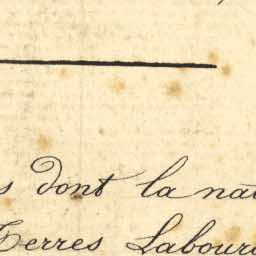 s dont la nat
Terres Labour